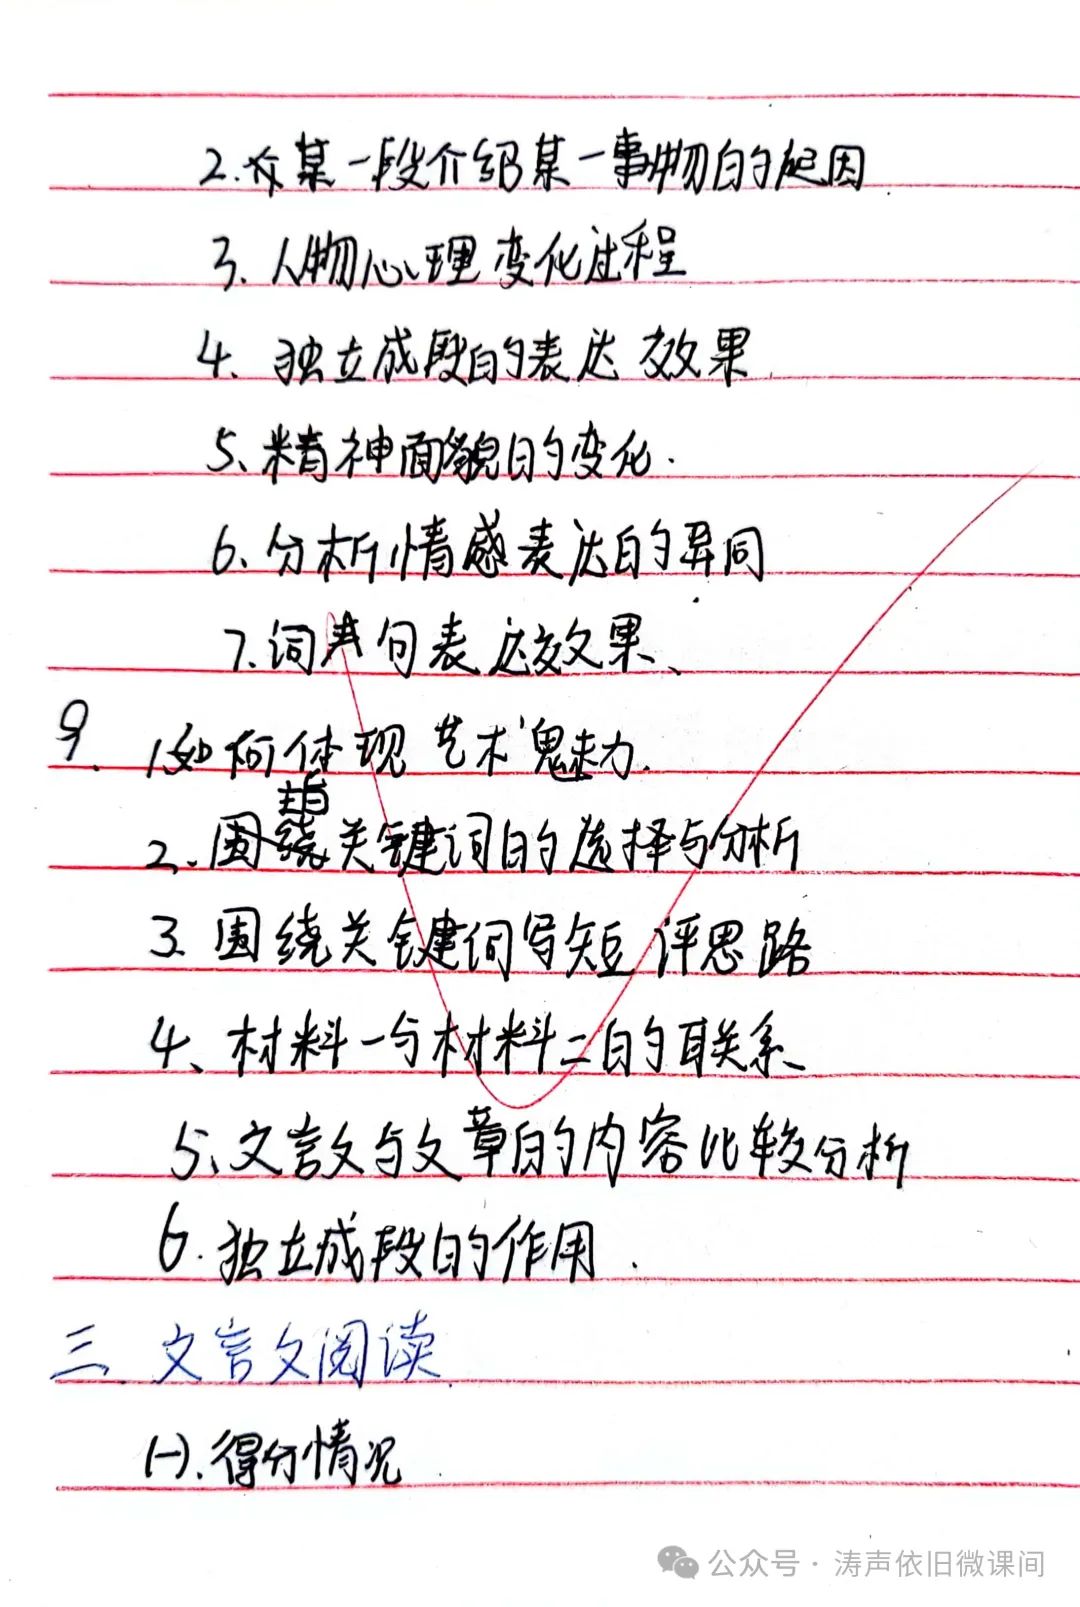 2.某一段介绍某一事物的起因
3.人物心理变化过程
4、独立成段的表达效果
5、精神面貌的变化.
6.分析情感表达的异同
7.词句表达效果、
9.1.如何体现艺术魅力.
2、围绕关键词的选择与分析
3.围绕关键词写短评思路
4、材料一与材料二的联系、
5、文言文与文章的内容比较分析
6.独立成段的作用.
三、文言文阅读
(一).得分情况
公众号·涛声依旧微课间